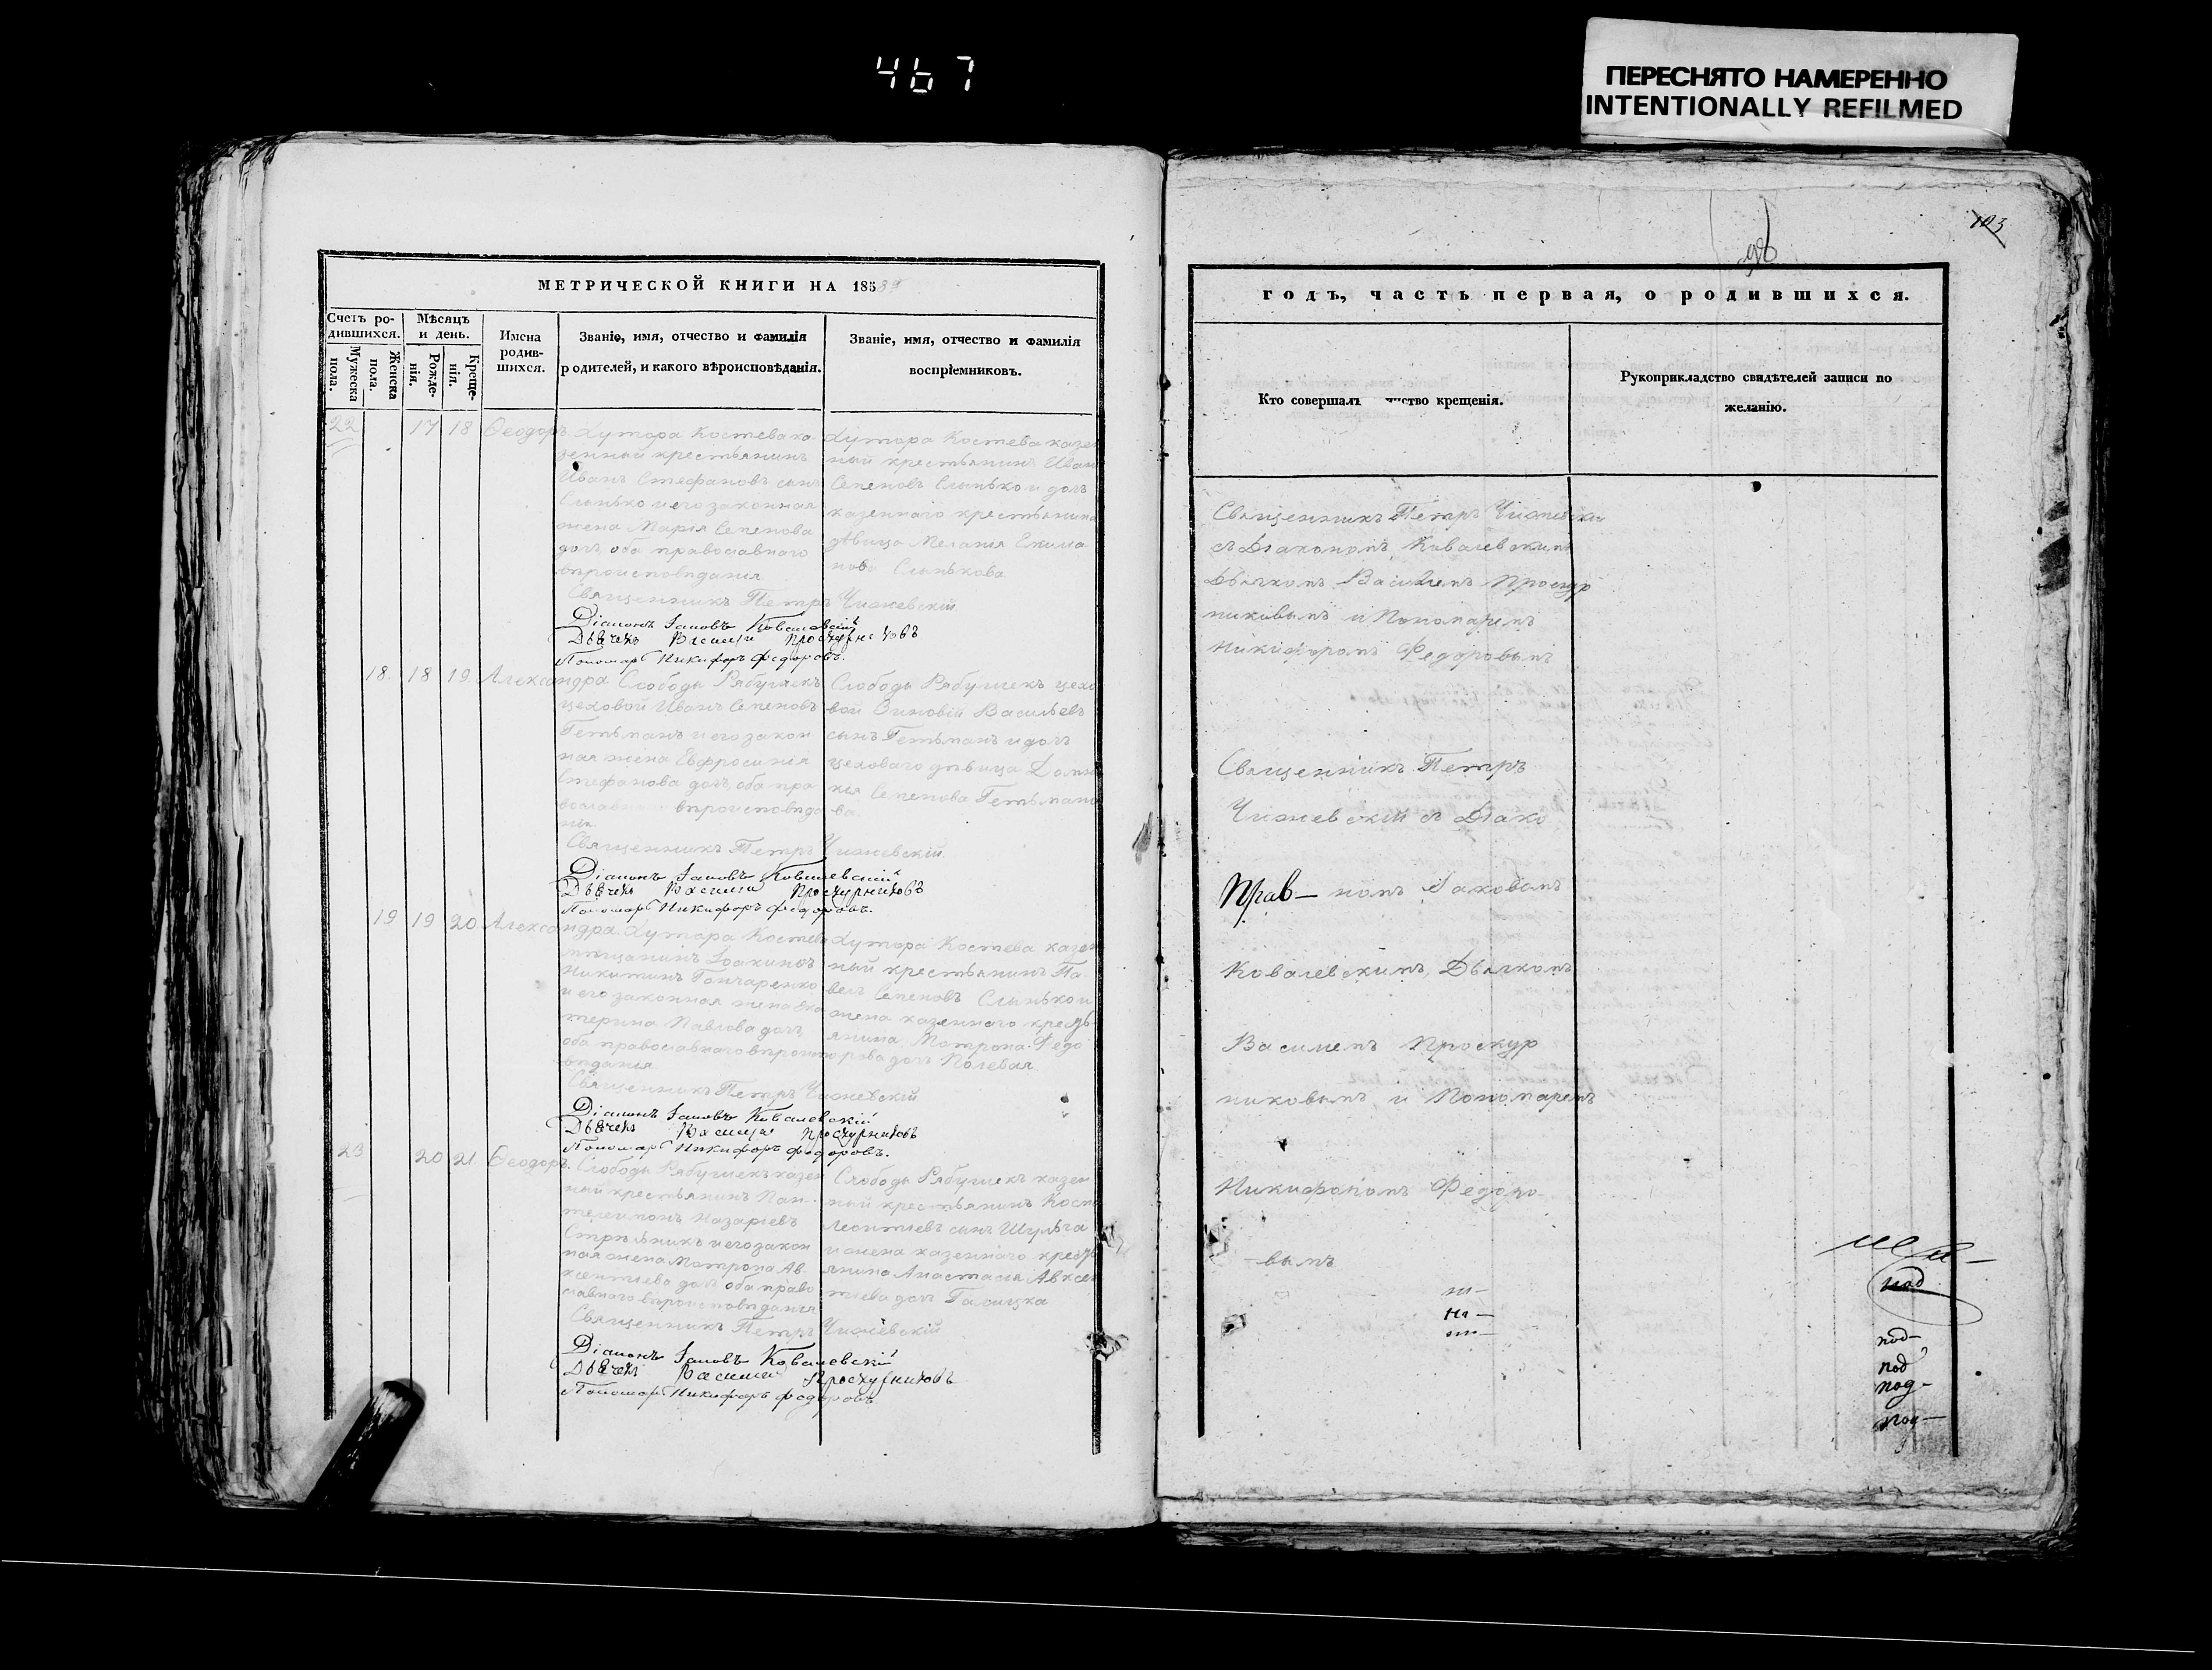 467
ПЕРЕСНЯТО НАМЕРЕННО
INTENTIONALLY REFILMED
103
МЕТРИЧЕСКОЙ КНИГИ НА 185
Счетъ родившихся.
Мужеска пола.
Женска пола.
Мѣсяцъ и день.
Рожденія.
Крещенія.
Имена родившихся.
Званіе, имя, отчество и фамилія
родителей, и какого вѣроисповѣданія.
Званіе, имя, отчество и фамилія
воспріемниковъ.
22 17 18 Ѳеодоръ
Хутора Костева ка
зенный крестьянинъ
Иванъ Стефановъ сынъ
Слинько и его законная
жена Марія Семенова
дочь, оба православнаго
вѣроисповѣданія
Хутора Костева казен
ный крестьянинъ Иван
Семеновъ Слинько и дочь
казеннаго крестьянина
дѣвица Меланія Екима
нова Слинькова
Священникъ Петръ Чижевскій
Діаконъ Іаковъ Ковалевскій
Дьячекъ Василій Проскурниковъ
Пономарь Никифоръ Федоровъ.
18 18 19 Александра
Слободы Рябушекъ
цеховой Иванъ Семеновъ
Гетьманъ и его закон
ная жена Евфросинія
Стефанова дочь, оба пра
вославнаго вѣроисповѣда
нія
Слободы Рябушекъ цехо
вой Зиновій Васильевъ
сынъ Гетьманъ и дочь
цеховаго дѣвица Домни
кія Семенова Гетьмано
ва
Священникъ Петръ Чижевскій
Діаконъ Іаковъ Ковалевскій
Дьячекъ Василій Проскурниковъ
Пономарь Никифоръ Федоровъ.
19 19 20 Александра
Хутора Костева
мѣщанинъ Іоакимъ
Никитинъ Гончаренко
и его законная жена Ека
терина Павлова дочь
оба православнаго вѣроиспо
вѣданія
Хутора Костева казен
ный крестьянинъ Па
велъ Семеновъ Слинько и
жена казеннаго кресть
янина Матрона Федо
рова дочь Полевая
Священникъ Петръ Чижевскій
Діаконъ Іаковъ Ковалевскій
Дьячекъ Василій Проскурниковъ
Пономарь Никифоръ Федоровъ.
23 20 21 Ѳеодоръ
Слободы Рябушекъ казен
ный крестьянинъ Пан
телеимонъ Назаріевъ
Стрѣльникъ и его закон
ная жена Матрона Ав
ксентіева дочь оба право
славнаго вѣроисповѣданія
Слободы Рябушекъ казен
ный крестьянинъ Косма
Леонтіевъ сынъ Шульга
и жена казеннаго кресть
янина Анастасія Авксен
тіева дочь Галицка
Священникъ Петръ Чижевскій
Діаконъ Іаковъ Ковалевскій
Дьячекъ Василій Проскурниковъ
Пономарь Никифоръ Федоровъ
годъ, часть первая, о родившихся.
Кто совершалъ
крещенія.
Рукоприкладство свидѣтелей записи по
желанію.
Священникъ Петръ Чижевскій
съ Діакономъ Ковалевскимъ
Дьячкомъ Василіемъ Проскур
никовымъ и Пономаремъ
Никифоромъ Федоровымъ
Священникъ Петръ
Чижевскій съ Діако
Прав— номъ Іаковомъ
Ковалевскимъ, Дьячкомъ
Василіемъ Проскур
никовымъ и Пономаремъ
Никифоромъ Федоро
-вымъ
на—
под
под—
под
под—
под—